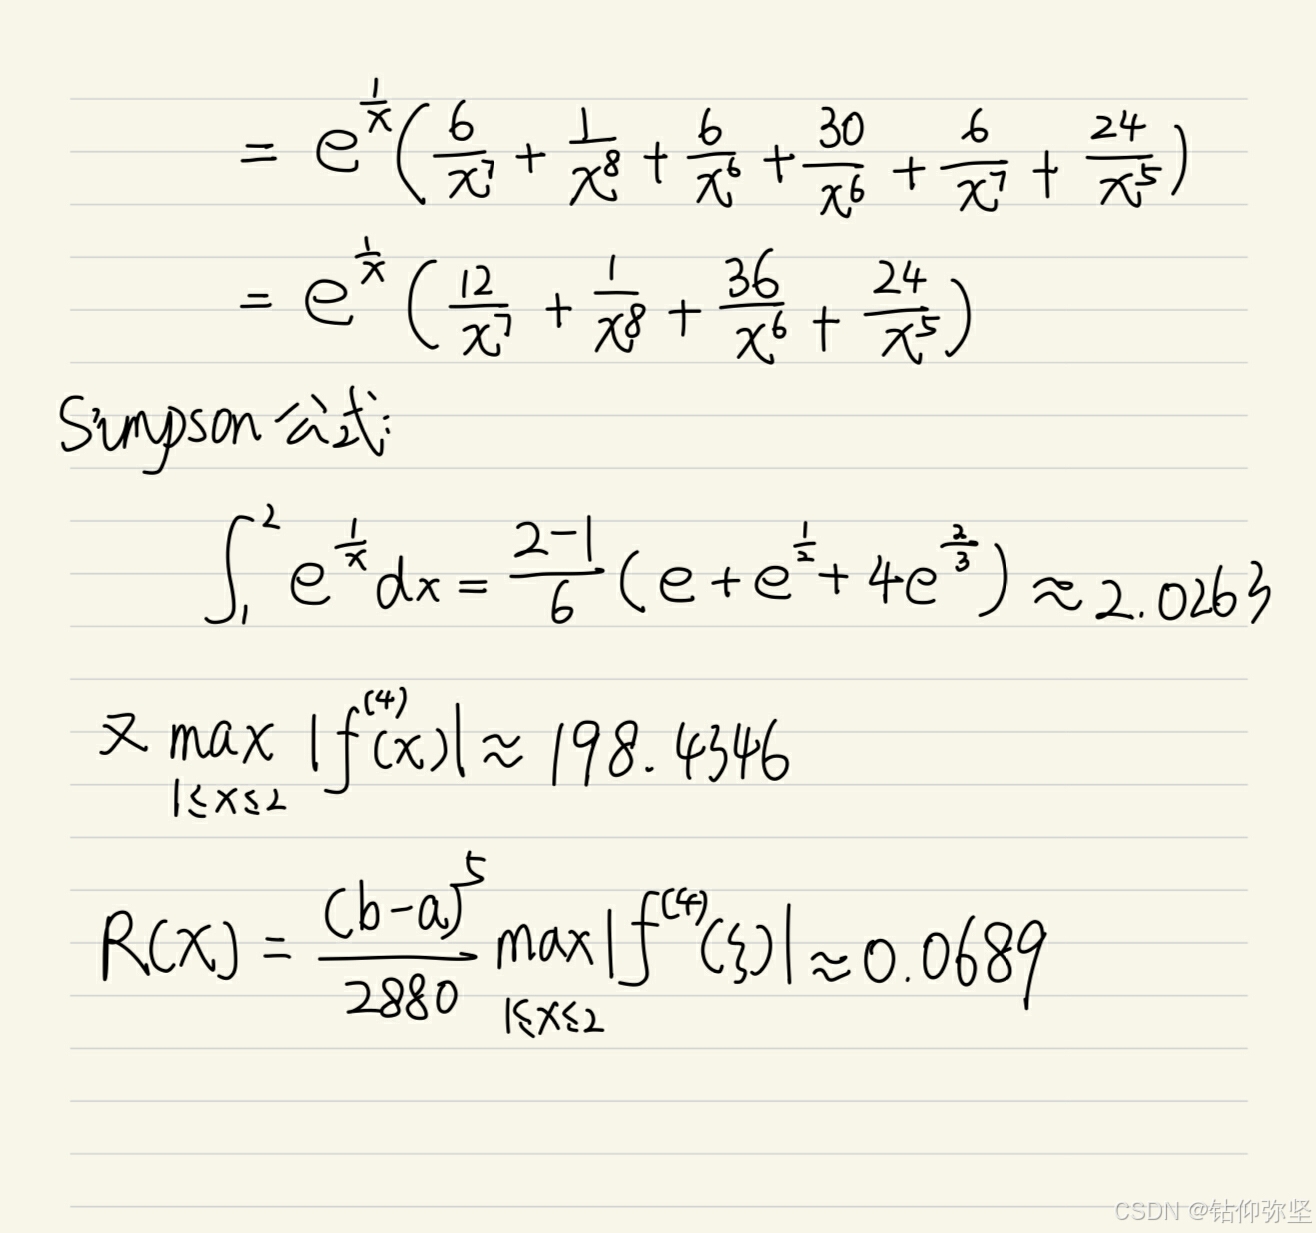 = e^{\frac{1}{x}} ( \frac{6}{x^7} + \frac{1}{x^8} + \frac{6}{x^6} + \frac{30}{x^6} + \frac{6}{x^7} + \frac{24}{x^5} )
= e^{\frac{1}{x}} ( \frac{12}{x^7} + \frac{1}{x^8} + \frac{36}{x^6} + \frac{24}{x^5} )
Simpson公式:
\int_1^2 e^{\frac{1}{x}} dx = \frac{2-1}{6} ( e + e^{\frac{1}{2}} + 4e^{\frac{2}{3}} ) ≈ 2.0263
又 \max_{1≤x≤2} |f^{(4)}(x)| ≈ 198.4346
R(x) = \frac{(b-a)^5}{2880} \max_{1≤x≤2} |f^{(4)}(ξ)| ≈ 0.0689
CSDN @钻仰弥坚